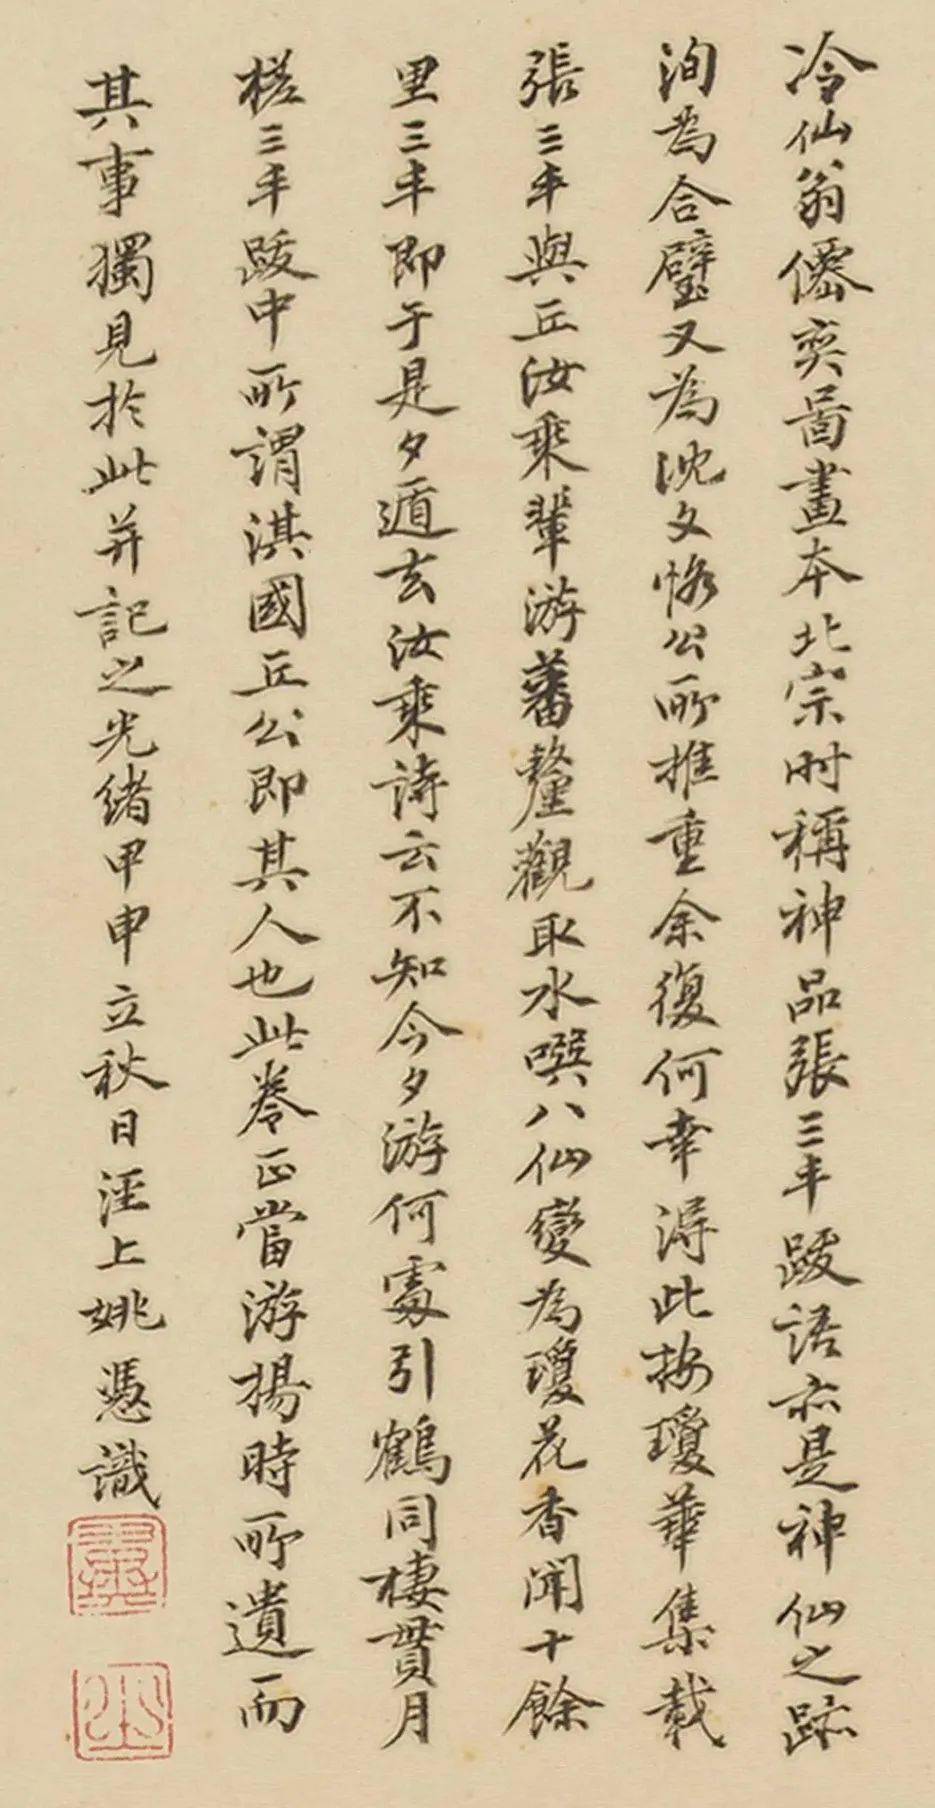 冷仙翁僊奕啚畫本北宗时稱神品張三丰跋語亦是神仙之跡
洵為合璧又為沈文恪公所推重余復何幸得此按瓊華集載
張三丰與丘汝乘輩游蕃釐觀取水噀八仙變為瓊花香聞十餘
里三丰即于是夕遁去汝乘詩云不知今夕游何處引鶴同棲貫月
槎三丰跋中所謂淇國丘公即其人也此卷正當游揚時所遺而
其事獨見於此并記之光緒甲申立秋日涇上姚憑識